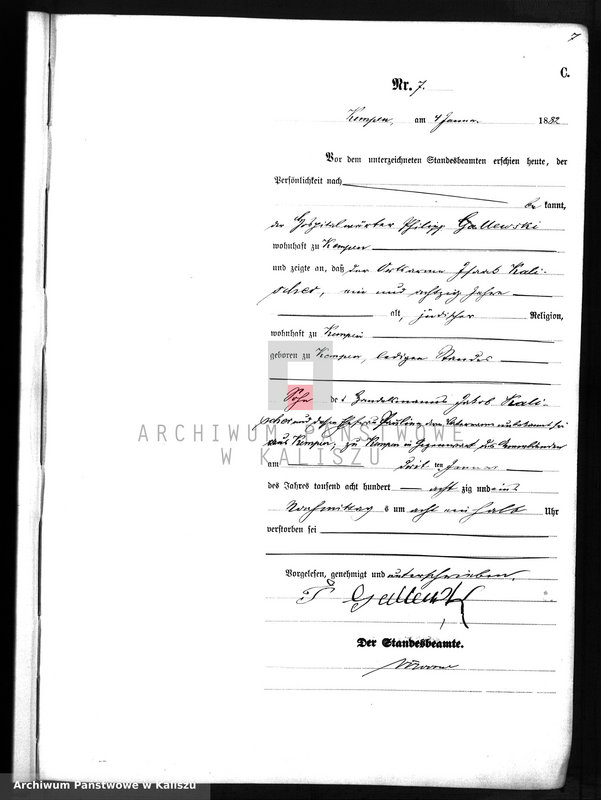 7
C.
Nr. 7.
Kempen, am 4 Januar 1882
Vor dem unterzeichneten Standesbeamten erschien heute, der
Persönlichkeit nach
be kannt,
der Hospitalwärter Philipp Gallewski
wohnhaft zu Kempen
und zeigte an, daß der Ortsarme Isaak Kali-
scher, ein und achtzig Jahre
alt, jüdischer Religion,
wohnhaft zu Kempen
geboren zu Kempen, ledigen Standes
Sohn des Handelsmanns Jakob Kali-
scher und dessen Ehefrau Pauline, deren Vatername unbekannt sei
aus Kempen, zu Kempen in Gegenwart des
am ten Januar
des Jahres tausend acht hundert acht zig und
Nachmittags um acht ein halb Uhr
verstorben sei
Vorgelesen, genehmigt und unterschrieben.
P Gallewski
Der Standesbeamte.
ARCHIWUM PAŃSTWOWE
W KALISZU
Archiwum Państwowe w Kaliszu